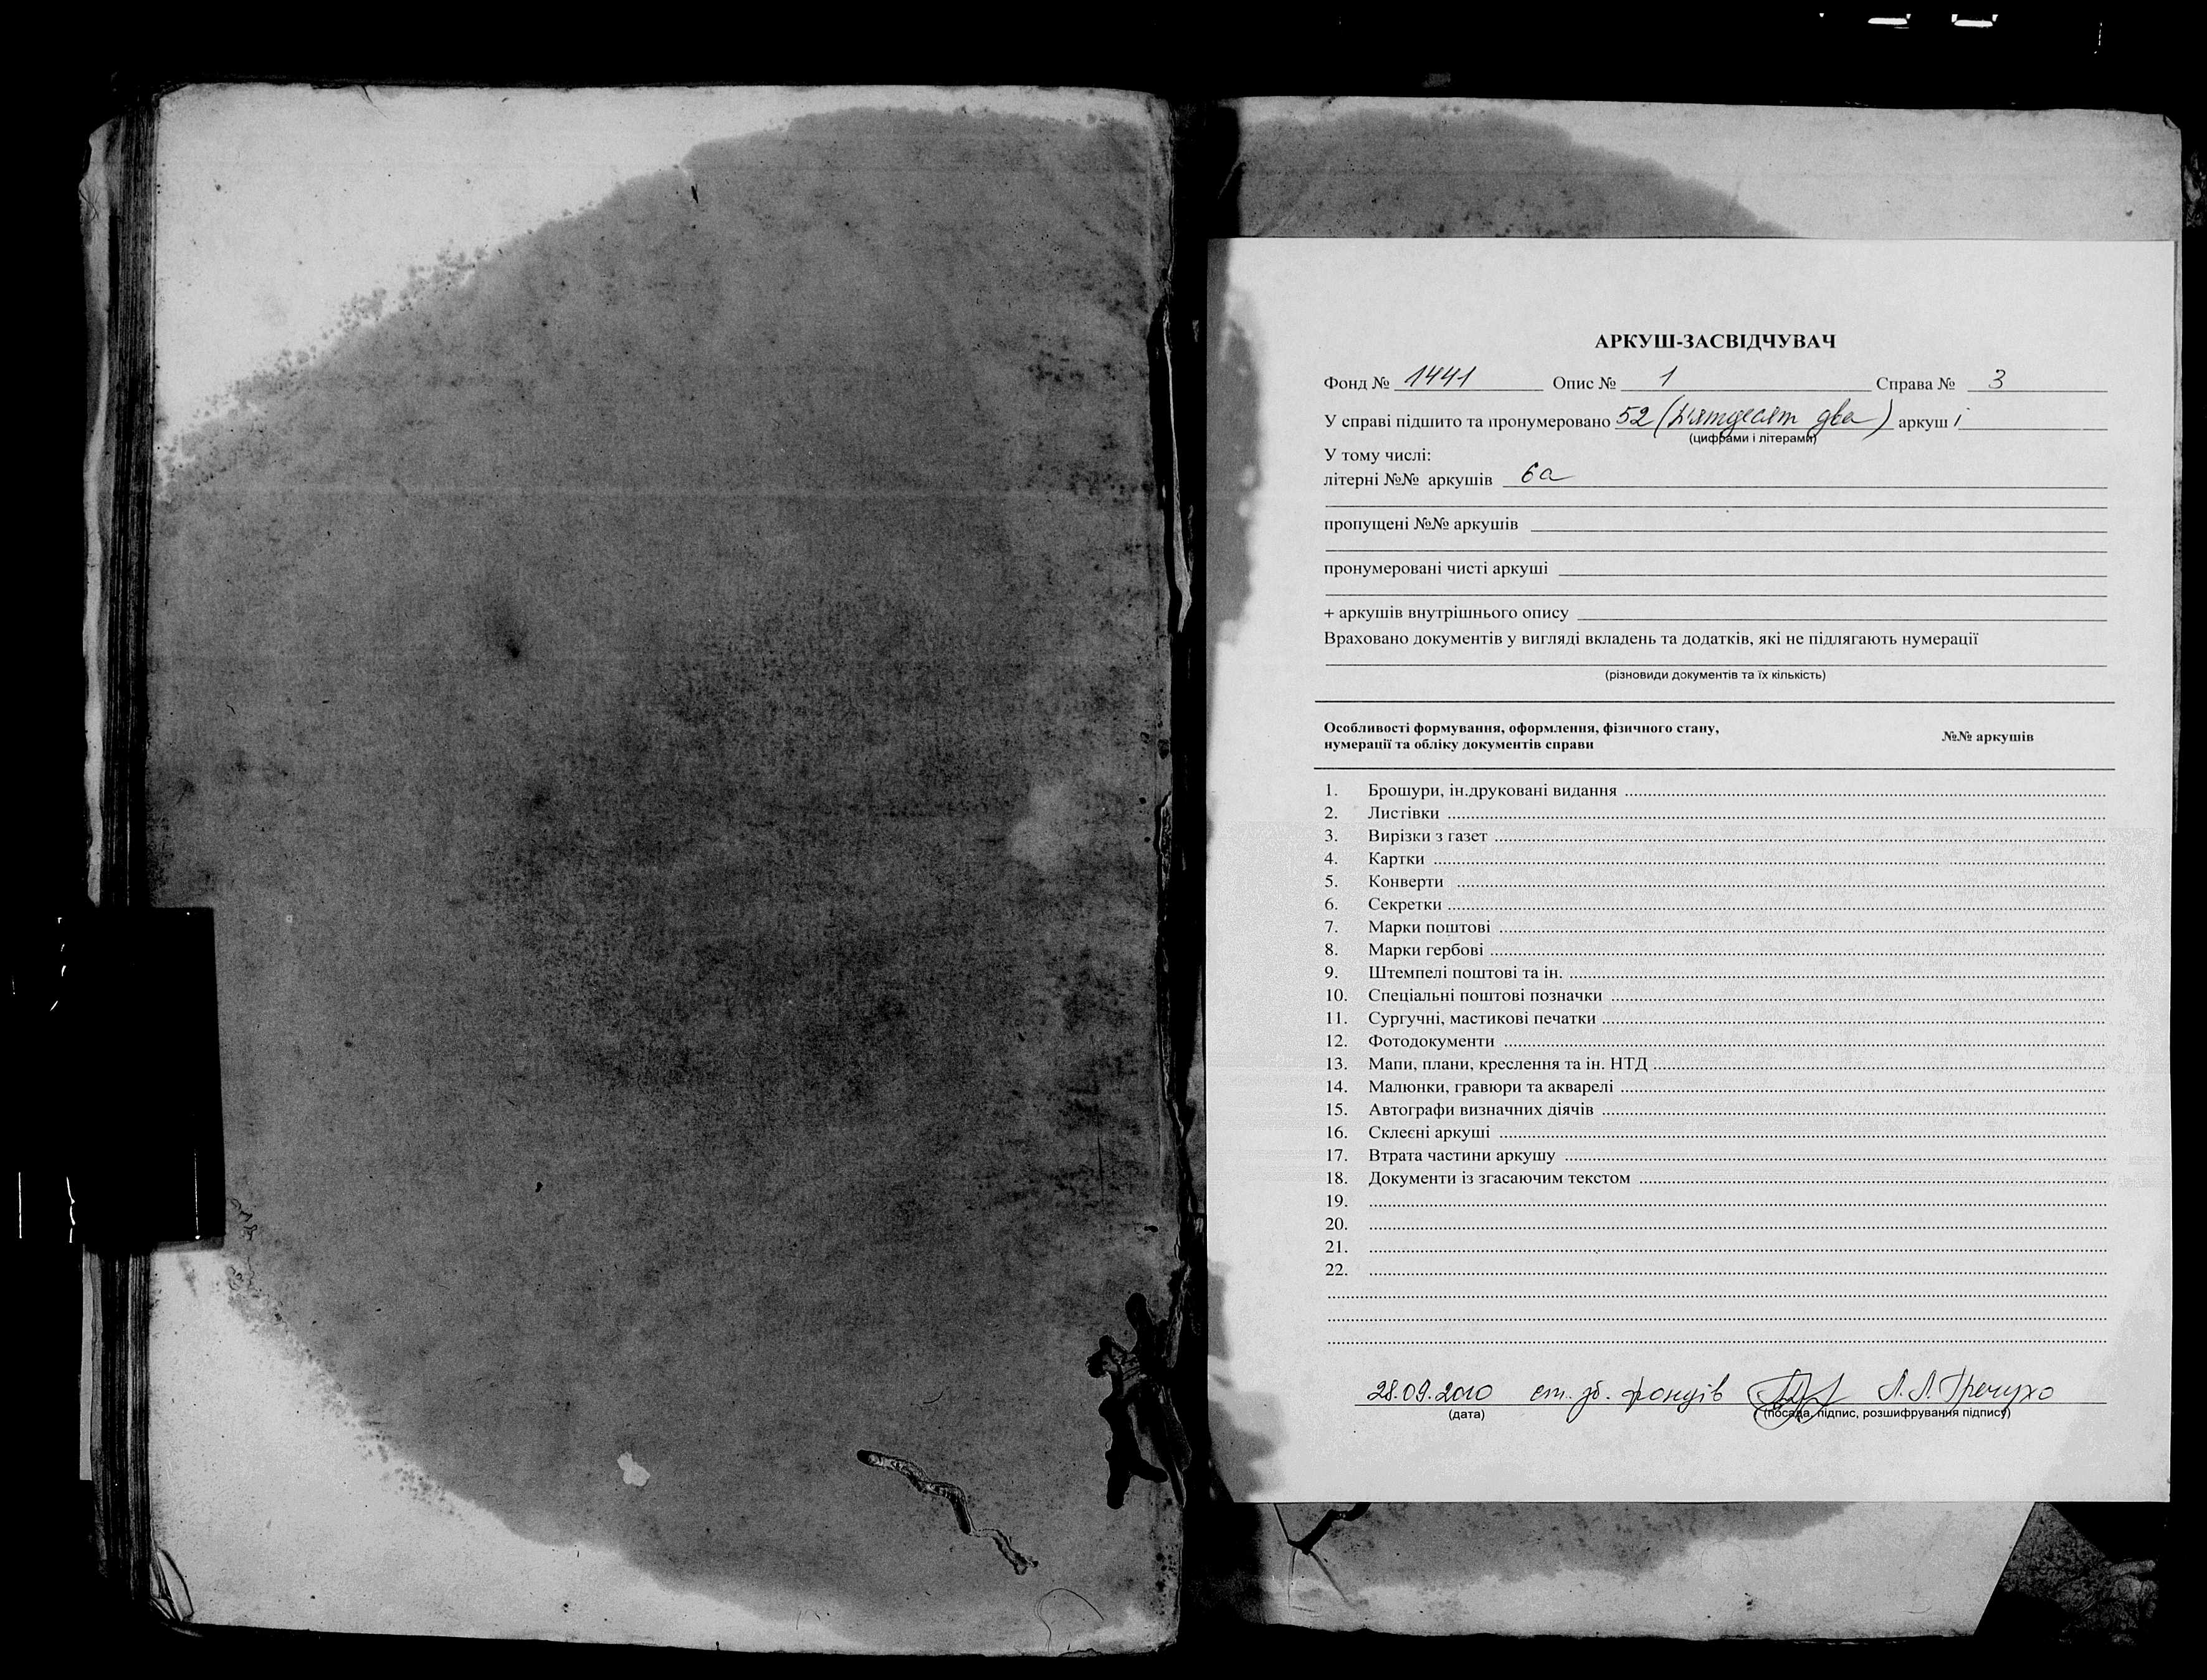 АРКУШ-ЗАСВІДЧУВАЧ
Фонд № 1441 Опис № 1 Справа № 3
У справі підшито та пронумеровано 52 (п'ятдесят два) аркуш і
(цифрами і літерами)
У тому числі:
літерні №№ аркушів 6а
пропущені №№ аркушів
пронумеровані чисті аркуші
+ аркушів внутрішнього опису
Враховано документів у вигляді вкладень та додатків, які не підлягають нумерації
(різновиди документів та їх кількість)
Особливості формування, оформлення, фізичного стану,
нумерації та обліку документів справи №№ аркушів
1. Брошури, ін.друковані видання
2. Листівки
3. Вирізки з газет
4. Картки
5. Конверти
6. Секретки
7. Марки поштові
8. Марки гербові
9. Штемпелі поштові та ін.
10. Спеціальні поштові позначки
11. Сургучні, мастикові печатки
12. Фотодокументи
13. Мапи, плани, креслення та ін. НТД
14. Малюнки, гравюри та акварелі
15. Автографи визначних діячів
16. Склеєні аркуші
17. Втрата частини аркушу
18. Документи із згасаючим текстом
19.
20.
21.
22.
28.09.2010 ст. зб. фондів
(дата) (посада, підпис, розшифрування підпису)